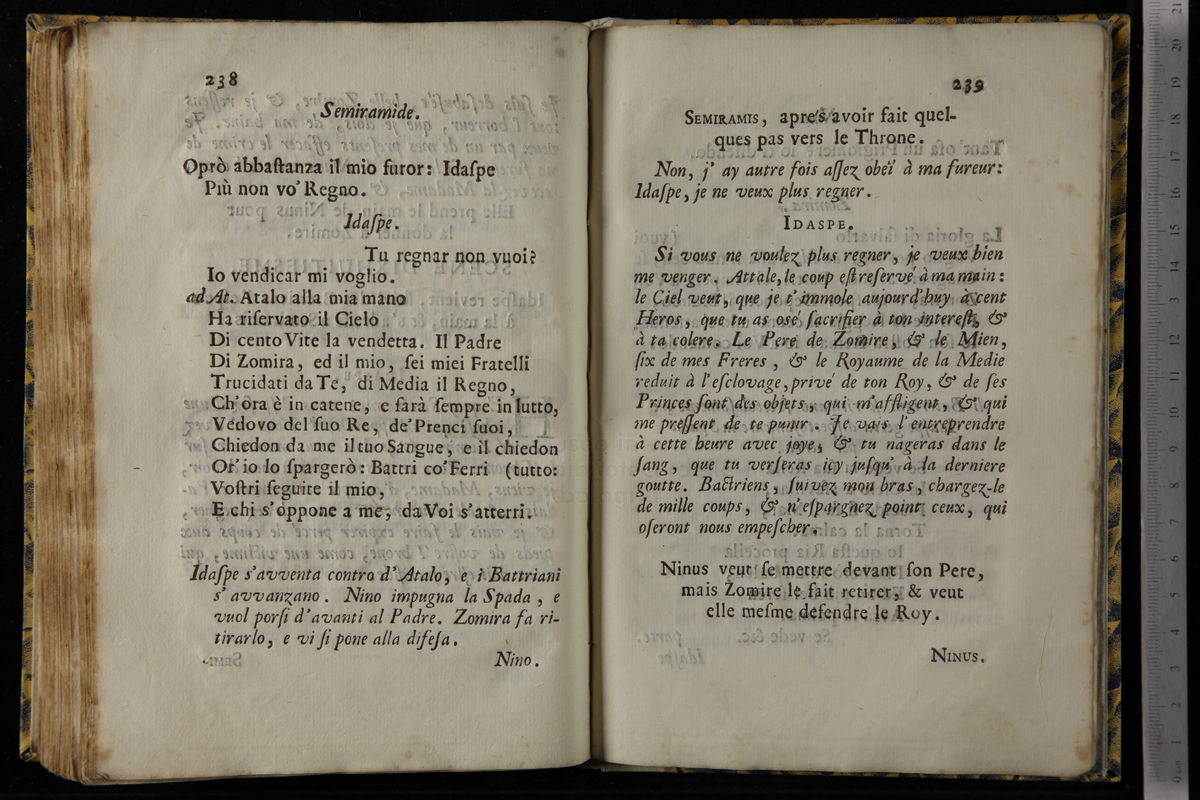 238
Semiramide.
Oprò abbaſtanza il mio furor: Idaſpe
Più non vo' Regno.
Idaſpe.
Tu regnar non vuoi?
Io vendicar mi voglio.
ad At. Atalo alla mia mano
Ha riſervato il Cielo
Di cento Vite la vendetta. Il Padre
Di Zomira, ed il mio, ſei miei Fratelli
Trucidati da Te, di Media il Regno,
Ch'ora è in catene, e ſarà ſempre in lutto,
Vedovo del ſuo Re, de' Prenci ſuoi,
Chiedon da me il tuo Sangue, e il chiedon
Or' io lo ſpargerò: Battri co' Ferri (tutto:
Voſtri ſeguite il mio,
E chi s'oppone a me, da Voi s'atterri.
Idaſpe s'avventa contro d'Atalo, e i Battriani
s' avvanzano. Nino impugna la Spada, e
vuol porſi d'avanti al Padre. Zomira fa ri-
tirarlo, e vi ſi pone alla difeſa.
Nino.
239
SEMIRAMIS, aprés avoir fait quel-
ques pas vers le Throne.
Non, j' ay autre fois aſſez obeï à ma fureur:
Idaſpe, je ne veux plus regner.
IDASPE.
Si vous ne voulez plus regner, je veux bien
me venger. Attale, le coup eſt reſervé à ma main:
le Ciel veut, que je t'immole aujourd'huy à cent
Heros, que tu as osé ſacrifier à ton intereſt, &
à ta colere. Le Pere de Zomire, & le Mien,
ſix de mes Freres, & le Royaume de la Medie
reduit à l'eſclovage, privé de ton Roy, & de ſes
Princes ſont des objets, qui m'affligent, & qui
me preſſent de te punir. Je vais l'entreprendre
à cette heure avec joye, & tu nageras dans le
ſang, que tu verſeras icy juſqu' à la derniere
goutte. Bactriens, ſuivez mon bras, chargez-le
de mille coups, & n'eſpargnez point ceux, qui
oſeront nous empeſcher.
Ninus veut ſe mettre devant ſon Pere,
mais Zomire le fait retirer, & veut
elle meſme defendre le Roy.
NINUS.